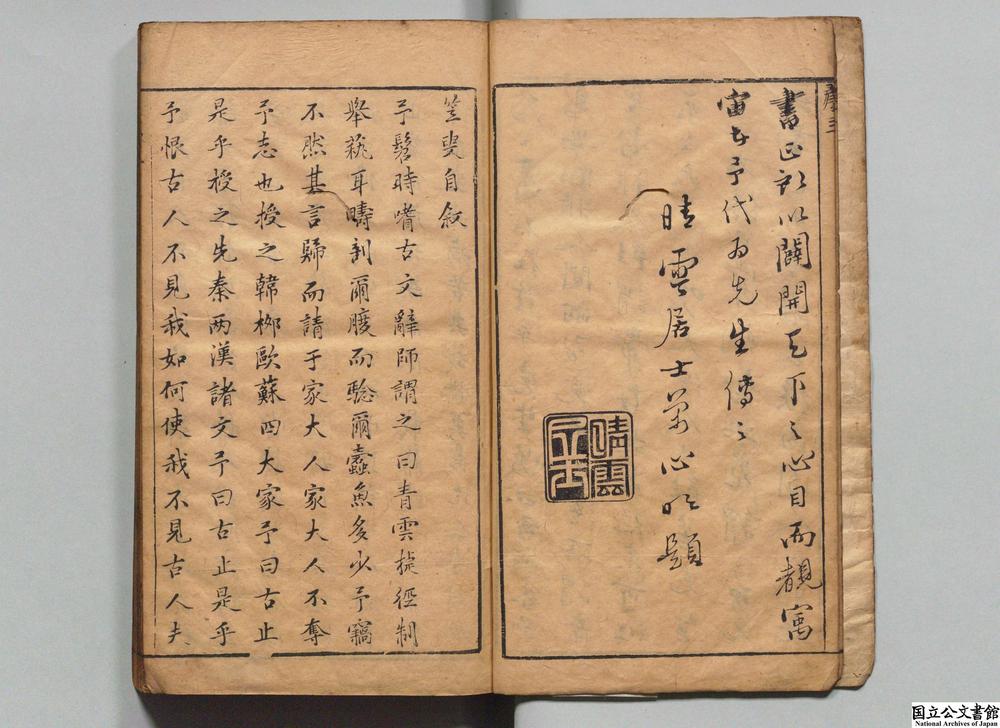 序三
書正所以闢開天下之心目而覩寓
宙也予代為先生傳之
晴雲居士萬心明題
晴雲居士
笠叟自叙
予髫時嗜古文辭師謂之曰青雲捷徑制
舉執耳疇剖爾腹而驗爾蠹魚多少予竊
不然其言歸而請于家大人家大人不奪
予志也授之韓栁歐蘇四大家予曰古止
是乎授之先秦两漢諸文予曰古止是乎
予恨古人不見我如何使我不見古人夫
国立公文書館
National Archives of Japan